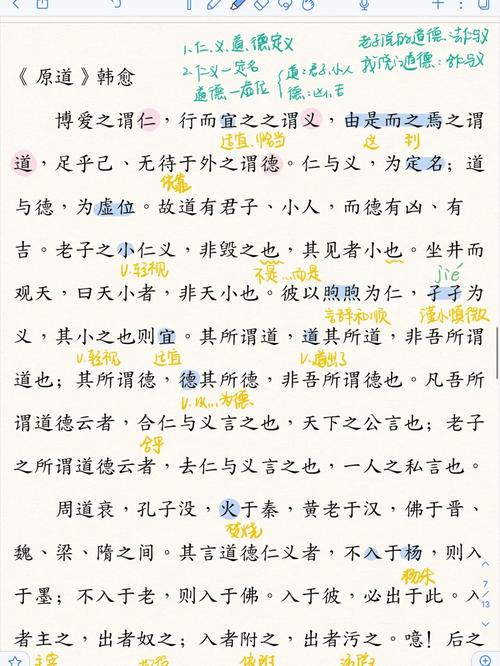 1.仁、义、道、德定义
老子说的道德:去仁义
2.仁义—定名
我说的道德:合仁义
道德—虚位
道:君子、小人
德:凶、吉
《原道》韩愈
博爱之谓仁，行而宜之之谓义，由是而之焉之谓
适宜、恰当
这
到
道，足乎己、无待于外之谓德。仁与义，为定名；道
依靠
与德，为虚位。故道有君子、小人，而德有凶、有
吉。老子之小仁义，非毁之也，其见者小也。坐井而
v.轻视
不是…而是
jié
观天，曰天小者，非天小也。彼以煦煦为仁，孑孑为
言辞和顺
谨小慎微
义，其小之也则宜。其所谓道，道其所道，非吾所谓
v.轻视
适宜
道也；其所谓德，德其所德，非吾所谓德也。凡吾所
v.以…为德
谓道德云者，合仁与义言之也，天下之公言也；老子
合乎
之所谓道德云者，去仁与义言之也，一人之私言也。
周道衰，孔子没，火于秦，黄老于汉，佛于晋、
焚烧
魏、梁、隋之间。其言道德仁义者，不入于杨，则入
杨朱
于墨；不入于老，则入于佛。入于彼，必出于此。入
7
13
者主之，出者奴之；入者附之，出者污之。噫！后之